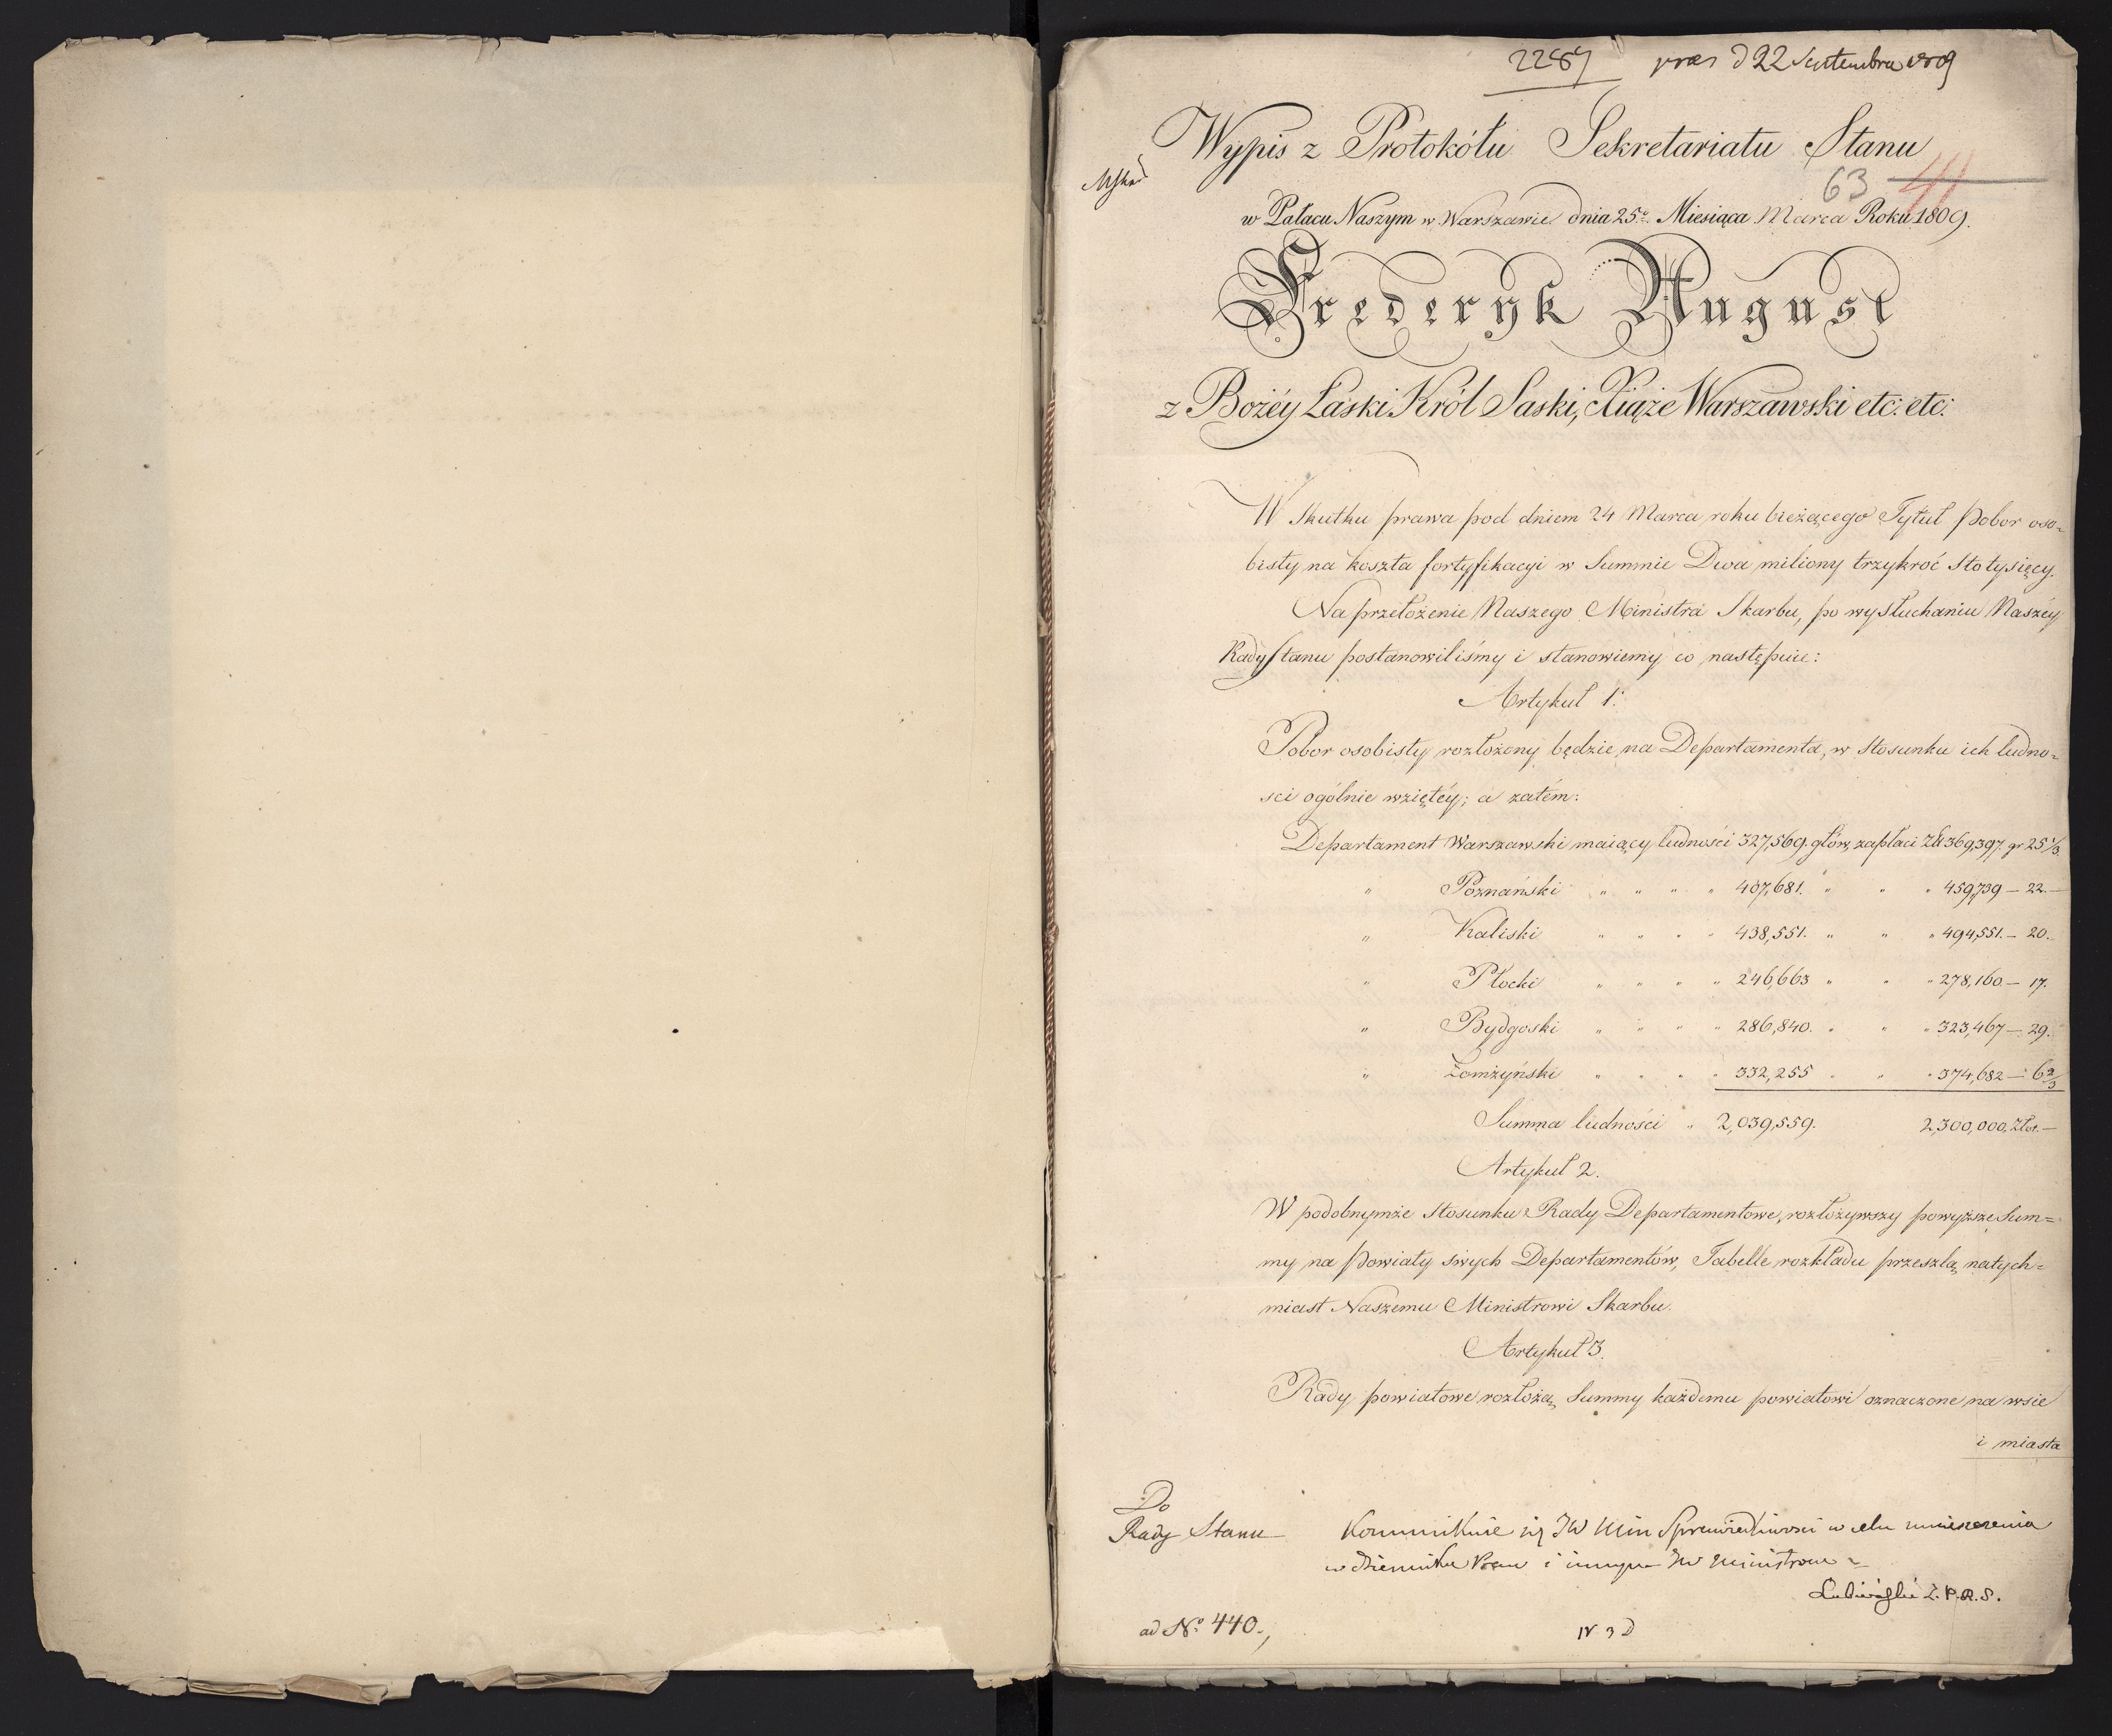 2287 præs d 22 Septembra 1809
Wypis z Protokółu Sekretariatu Stanu
63 41
w Pałacu Naszym w Warszawie dnia 25º. Miesiąca Marca Roku 1809.
Frederyk August
z Bożéy Łaski Król Saski, Xiąże Warszawski etc: etc:
W Skutku prawa pod dniem 24 Marca roku bieżącego Tytuł Pobor oso=
bisty na koszta fortyfikacyi w Summie Dwa miliony trzykroć Sto tysięcy.
Na przełożenie Naszego Ministra Skarbu, po wysłuchaniu Naszéy
Rady Stanu postanowiliśmy i stanowiemy co następuie:
Artykuł 1.
Pobor osobisty rozłożony będzie na Departamenta, w Stosunku ich ludno=
sci ogólnie wziętéy; a zatém:
Departament Warszawski maiący ludności 327,569. głów, zapłaci Zł 369,397. gr 25 1/3.
" Poznański " " " " 407,681. " " " 459,739 — 22. —
" Kaliski " " " " 438,551. " " " 494,551. — 20.
" Płocki " " " " 246,663 " " " 278,160 — 17.
" Bydgoski " " " " 286,840. " " " 323,467 — 29.
" Łomżyński " " " " 332,255 " " " 374,682 — 6 2/3
Summa ludności " 2,039,559. 2,300,000. Złot. —
Artykuł 2.
W podobnymże Stosunku Rady Departamentowe, rozłożywszy powyższe Sum=
my na Powiaty swych Departamentów, Tabelle rozkładu przeszlą natych=
miast Naszemu Ministrowi Skarbu.
Artykuł 3.
Rady powiatowe rozłożą Summy każdemu powiatowi oznaczone na wsie
i miasta
Do
Rady Stanu
Kommunikuie się JW Min Sprawiedliwosci w celu umieszczenia
w dzienniku Praw i innym JW Ministrom
Z. P. R. S.
ad Nº. 440.,